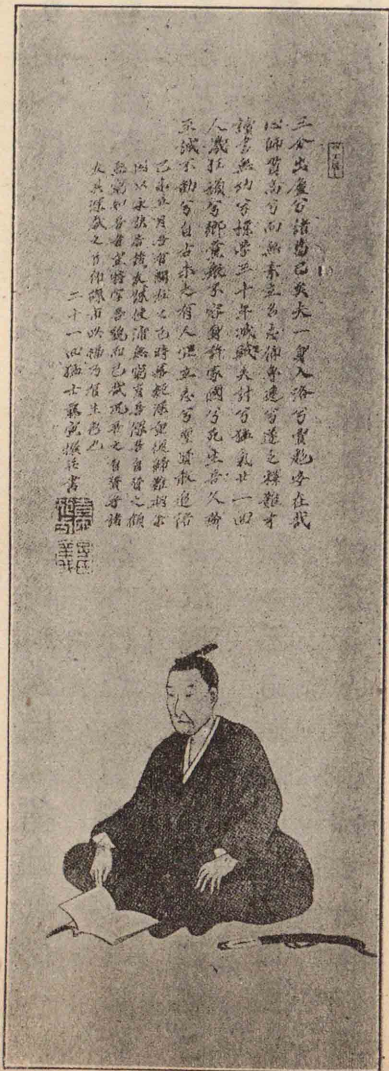 三分出廬兮諸葛已矣夫一身入洛兮賈彪安在哉
心師貫高兮而無素立名志仰魯連兮遂乏釋難才
讀書無功兮樸學三十年滅賊失計兮猛氣廿一回
人譏狂頑兮鄉黨衆不容身許家國兮死生吾久齊
至誠不動兮自古未之有人宜立志兮聖賢敢追陪
己未五月吾有關左之厄時幕疑深重復歸難期余
因以永訣告諸友謀使浦無窮肖吾像吾自賛之顧
無窮知吾者豈特寫吾貌而已哉況吾之自賛乎諸
友其深藏之吾即磔市此幅乃有生色也
二十一回猛士藤寅撰幷書